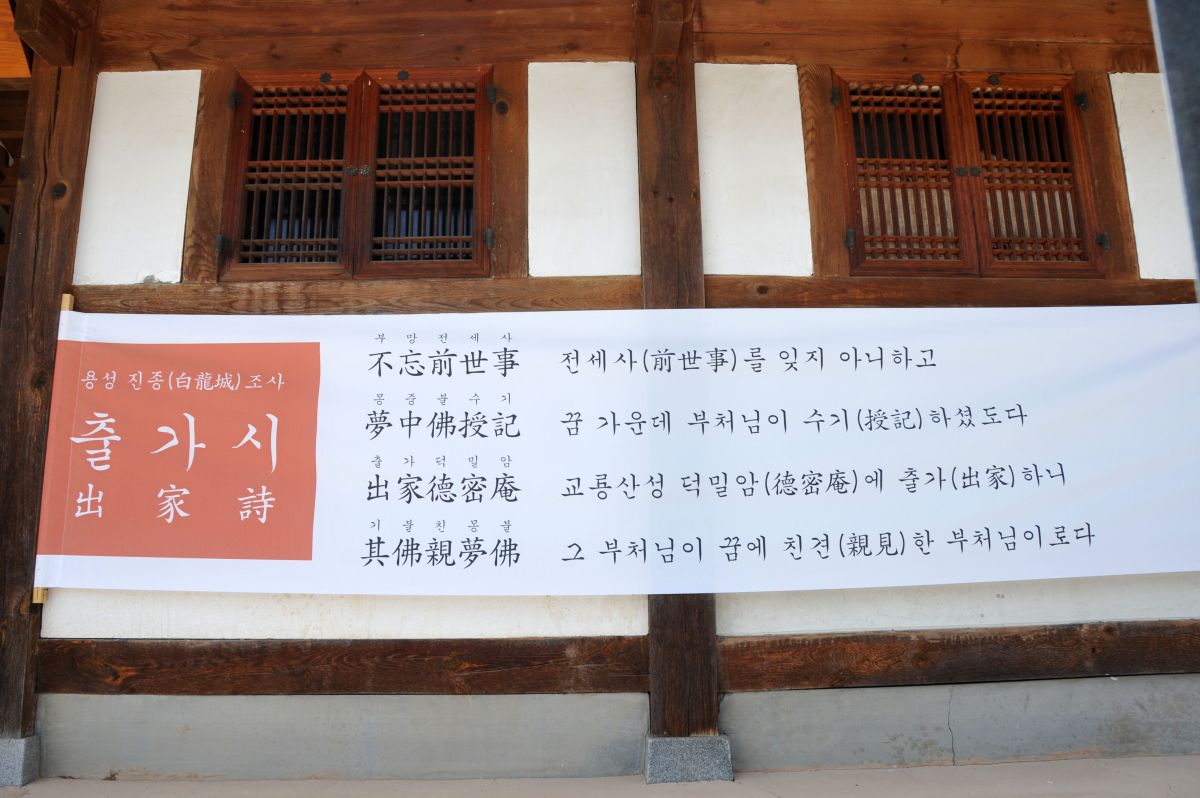 용성 진종(白龍城)조사
출가시
出家詩
부망전세사
不忘前世事
전세사(前世事)를 잊지 아니하고
몽중불수기
夢中佛授記
꿈 가운데 부처님이 수기(授記)하셨도다
출가덕밀암
出家德密庵
교룡산성 덕밀암(德密庵)에 출가(出家)하니
기불친몽불
其佛親夢佛
그 부처님이 꿈에 친견(親見)한 부처님이로다